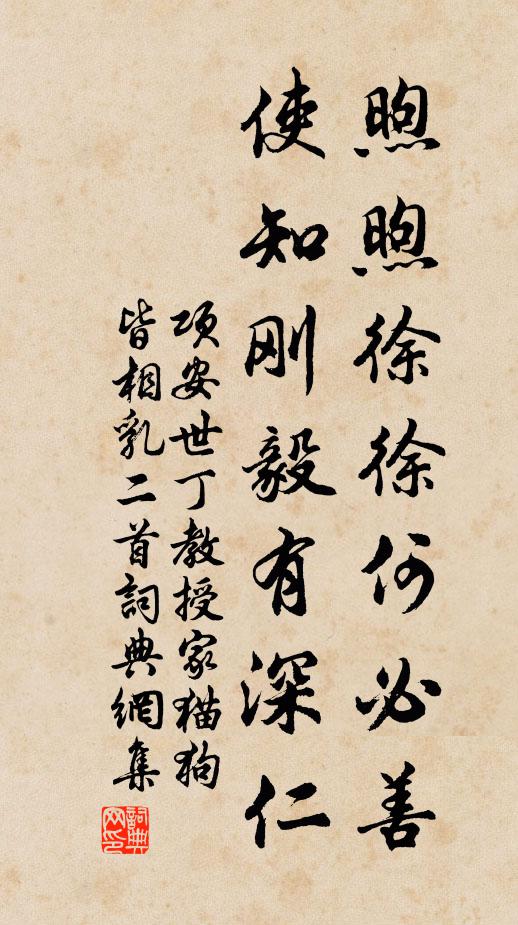 煦煦徐徐何必善
使知刚毅有深仁
项安世丁教授家猫狗
皆相乳二首詞典網集
詞典网印